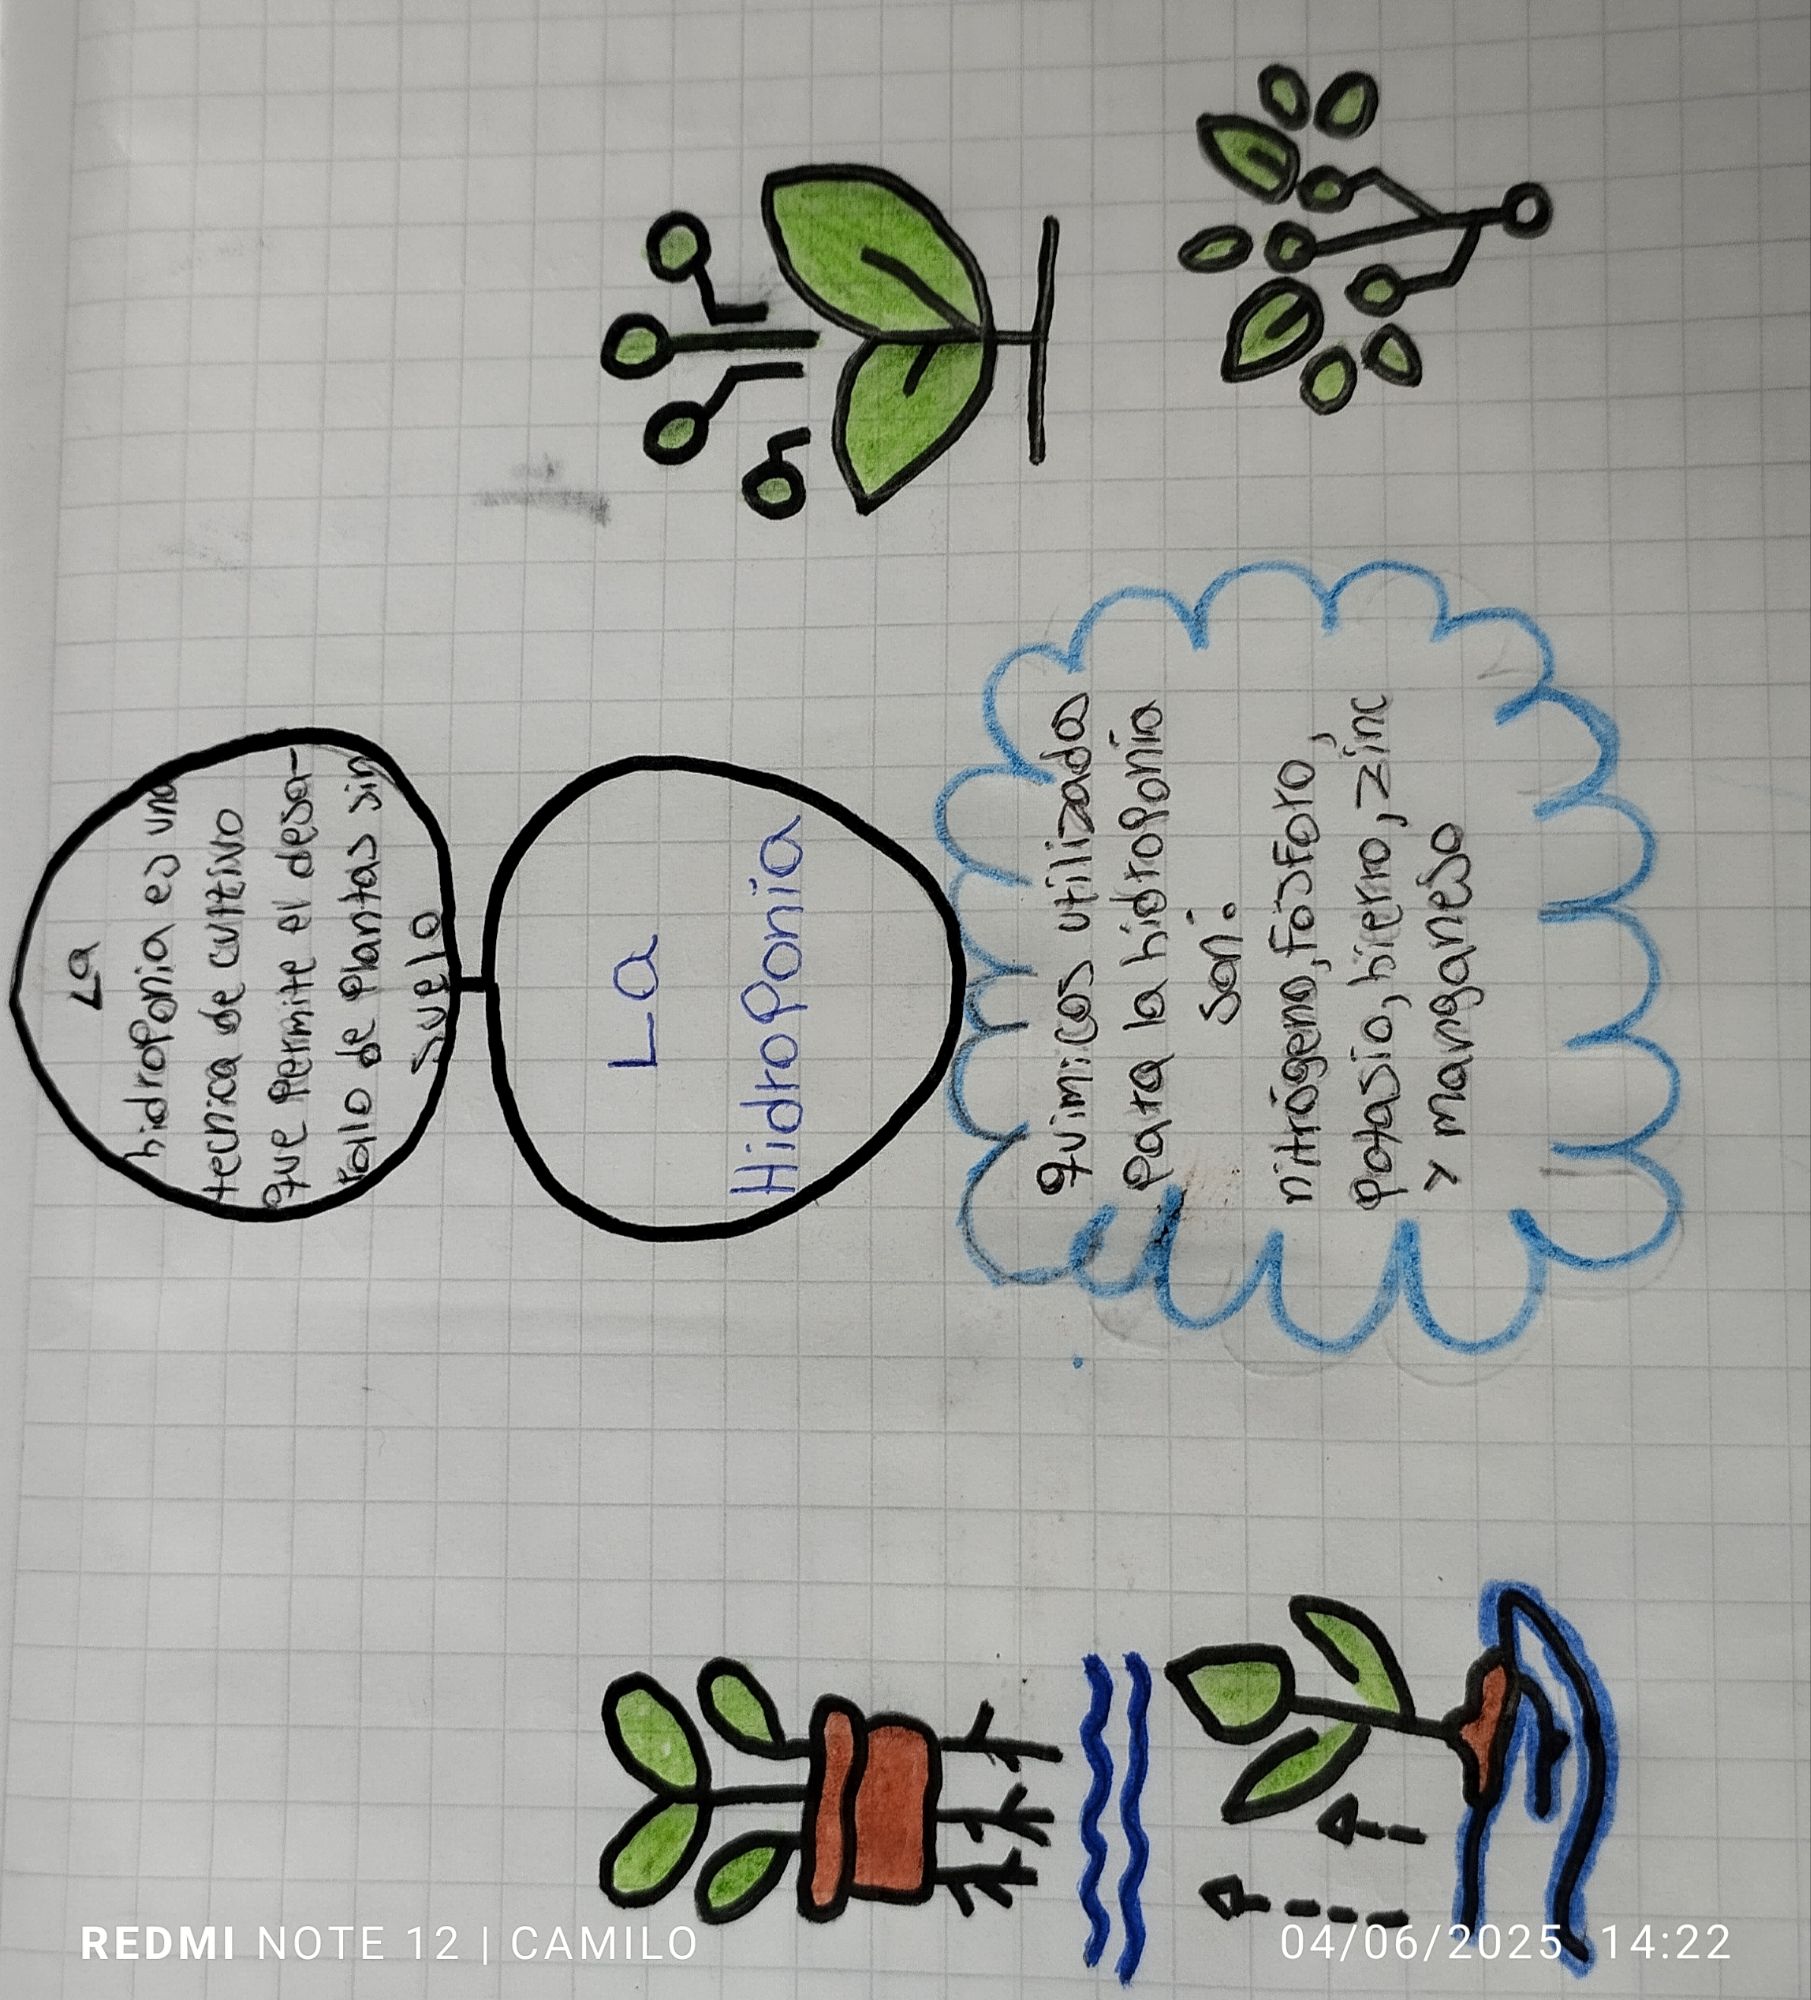 La
hidroponia es una
tecnica de cultivo
que permite el desa-
rollo de plantas sin
suelo
La
Hidroponia
quimicos utilizada
para la hidroponia
son:
nitrógeno, fosforo,
potasio, hierro, zinc
y manganeso
REDMI NOTE 12 | CAMILO
04/06/2025 14:22